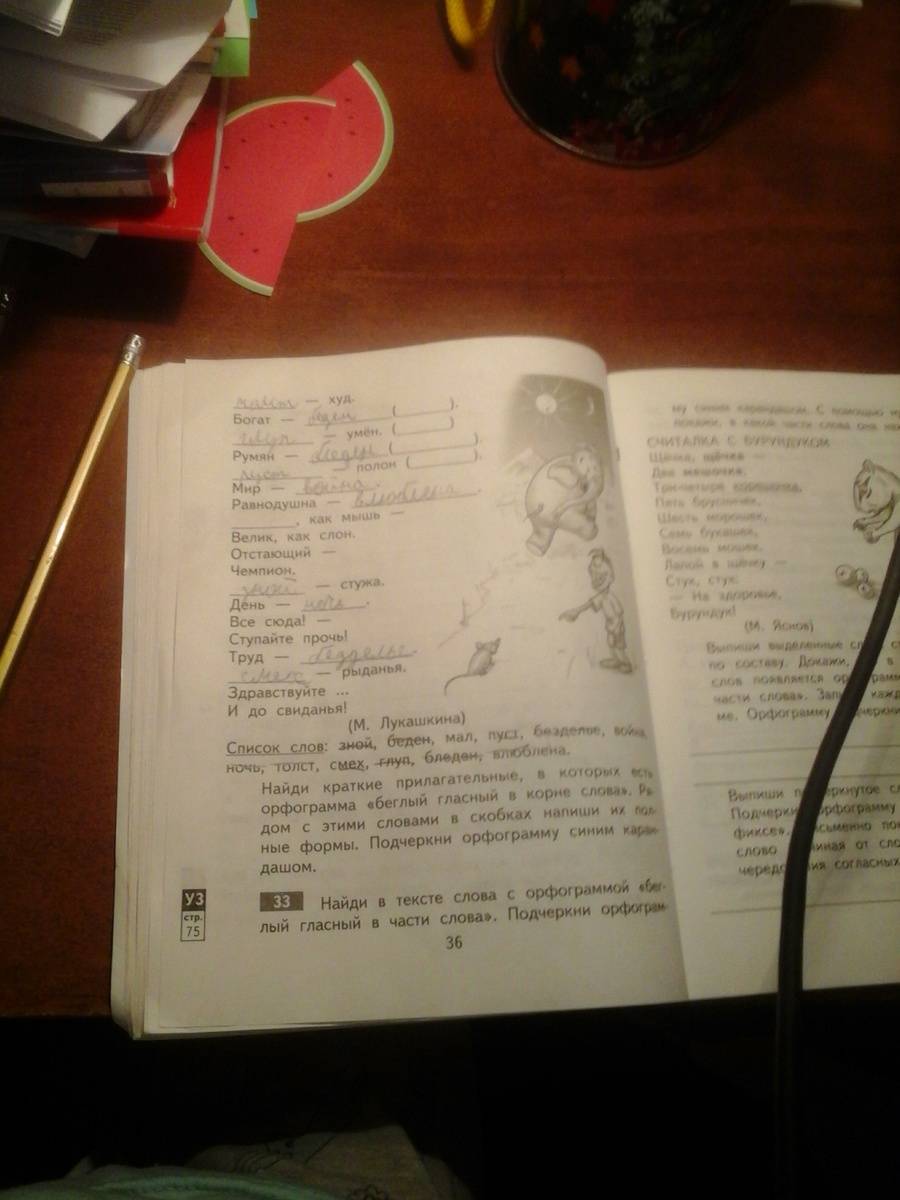 толст — худ.
Богат — беден (        ).
глуп — умён. (        )
Румян — бледен (        ).
пуст — полон (        ).
Мир — война.
Равнодушна — влюблена.
, как мышь —
Велик, как слон.
Отстающий —
Чемпион.
зной — стужа.
День — ночь.
Все сюда! —
Ступайте прочь!
Труд — безделье.
смех — рыданья.
Здравствуйте ...
И до свиданья!
(М. Лукашкина)
Список слов: зной, беден, мал, пуст, безделье, война,
ночь, толст, смех, глуп, бледен, влюблена.
Найди краткие прилагательные, в которых есть
орфограмма «беглый гласный в корне слова». Ря-
дом с этими словами в скобках напиши их пол-
ные формы. Подчеркни орфограмму синим каран-
дашом.
УЗ
стр.
75
33 Найди в тексте слова с орфограммой «бег-
лый гласный в части слова». Подчеркни орфограм-
36
му синим карандашом. С помощью
покажи, в какой части слова она
СЧИТАЛКА С БУРУНДУКОМ
Щёчка, щёчка —
Два мешочка;
Три-четыре корешочка,
Пять брусничек,
Шесть морошек,
Семь букашек,
Восемь мошек.
Лапой в щёчку —
Стук, стук:
— На здоровье,
Бурундук!
(М. Яснов)
Выпиши выделенные
по составу. Докажи, в
слов появляется
части слова».
ме. Орфограмму
Выпиши
Подчеркни орфограмму
фиксе».
слово от
чередования согласных